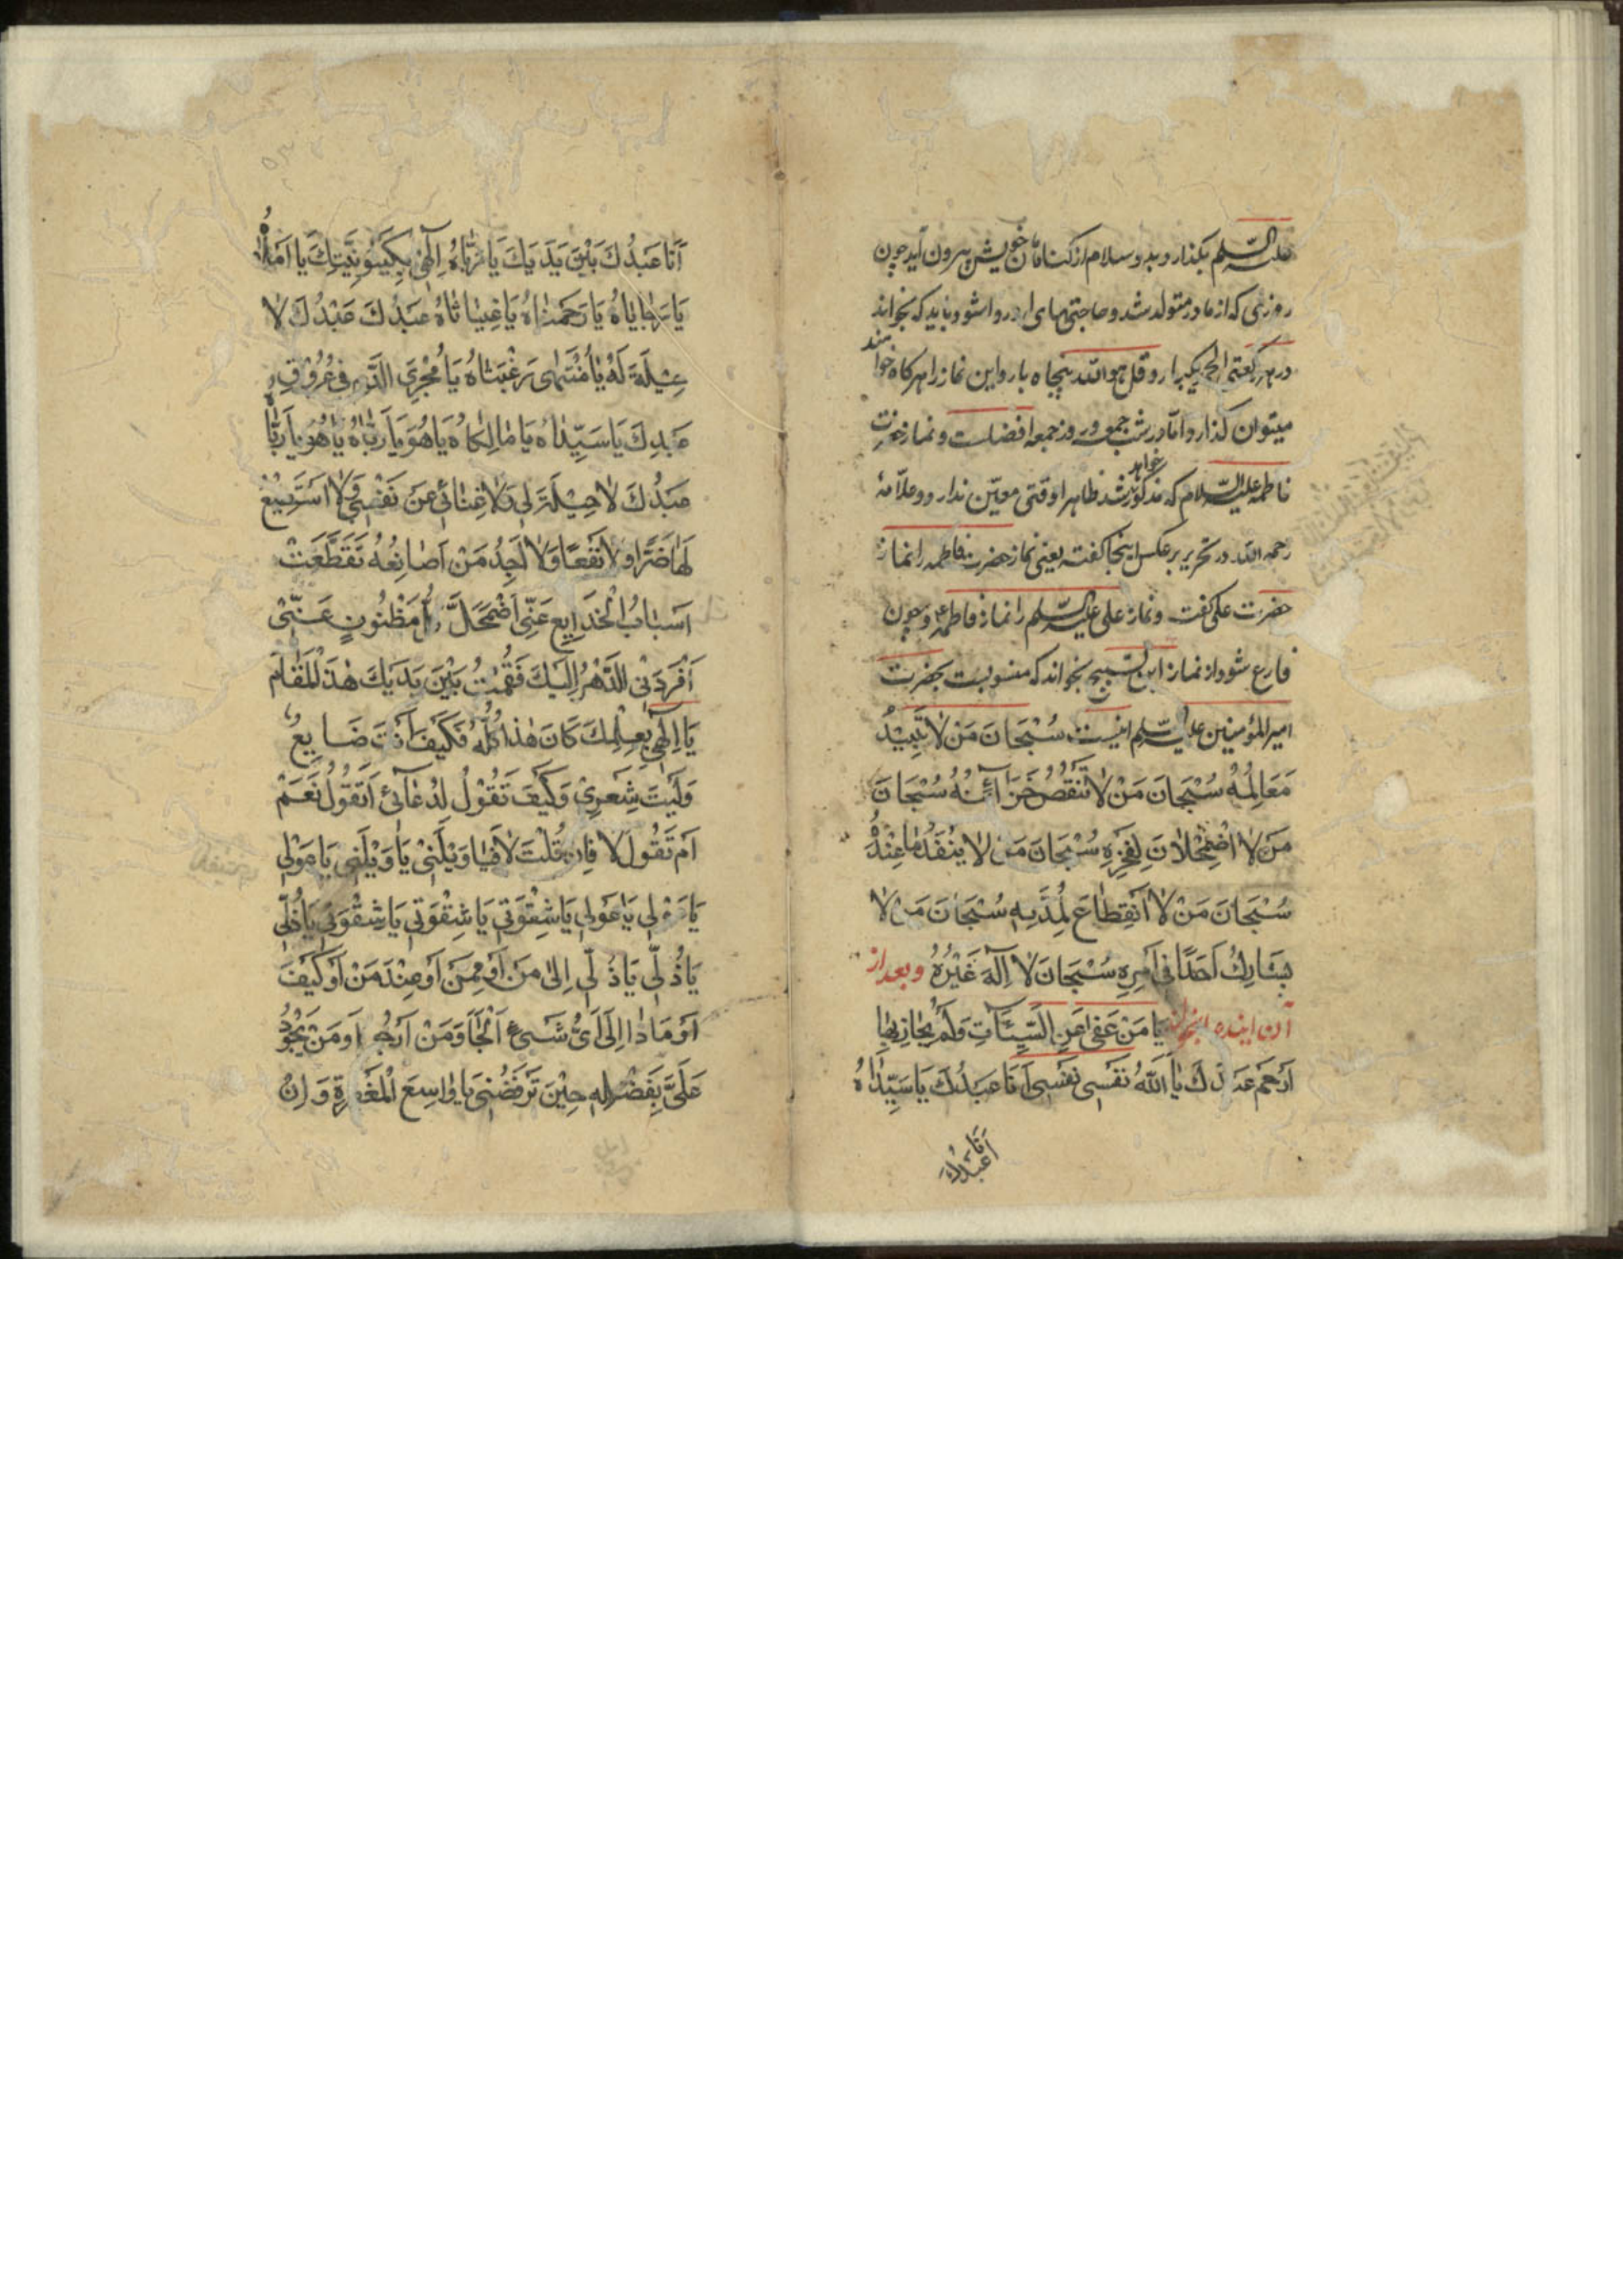 علیه السلم بگذارد بدو سلام از گناهان خویش بیرون آید چون
روزی که از مادر متولد شد و حاجتهای او روا شود و باید که بخواند
در هر رکعتی الحمد یکبار و قل هو الله پنجاه بار و این نماز را هر گاه خواهند
میتوان گذارد و اما در شب جمعه و روز جمعه افضلست و نماز حضرت
فاطمه علیها السلام که مذکور خواهد شد ظاهرا وقتی معین ندارد و علامهٔ
رحمه الله در تحریر برعکس اینجا گفته یعنی نماز حضرت فاطمه را نماز
حضرت علی گفت و نماز علی علیه السلم را نماز فاطمه و چون
فارغ شود از نماز این تسبیح بخواند که منسوبست بحضرت
امیر المؤمنین علیه السلم اینست سُبْحَانَ مَنْ لَا تَبِیْدُ
مَعَالِمُهُ سُبْحَانَ مَنْ لَا تَنْقُصُ خَزَآئِنُهُ سُبْحَانَ
مَنْ لَا اضْمِحْلَانَ لِفَخْرِهِ سُبْحَانَ مَنْ لَا یَنْفَدُ مَا عِنْدَهُ
سُبْحَانَ مَنْ لَا اَنْقِطَاعَ لِمُدَّتِهِ سُبْحَانَ مَنْ لَا
یُشَارِكُ اَحَدًا فِی اَمْرِهِ سُبْحَانَ لَا اِلٓهَ غَیْرُهُ و بعد از
آن این یَا مَنْ عَفٰی عَنِ السَّیِّئَاتِ وَلَمْ یُجَازِ بِهَا
اَرْحَمْ عَبْدَكَ یَا اَللهُ نَفْسِی نَفْسِی اَنَا عَبْدُكَ یَا سَیِّدَاهُ
اَنَا عَبْدُكَ
اَنَا عَبْدُكَ بَیْنَ یَدَیْكَ یَا رَبَّاهُ اِلٰهِی بِكَیْنُونِیَّتِكَ یَا اَمَلَاهُ
یَا رَحْمَنَاهُ یَا غِیَاثَاهُ عَبْدُكَ عَبْدُكَ لَا
حِیْلَةَ لَهُ یَا مُنْتَهٰی رَغْبَتَاهُ یَا مُجْرِیَ الدَّمِ فِی عُرُوْقِ
عَبْدِكَ یَا سَیِّدَاهُ یَا مَالِكَاهُ یَا هُوَ یَا رَبَّاهُ یَا هُوَ یَا رَبَّاهُ
عَبْدُكَ لَا حِیْلَةَ لِی وَلَا غِنَائِی عَنْ نَفْسِی وَلَا اَسْتَطِیْعُ
لَهَا ضَرًّا وَلَا نَفْعًا وَلَا اَجِدُ مَنْ اُصَانِعُهُ تَقَطَّعَتْ
اَسْبَابُ الْخَدَایِعِ عَنِّی اَضْمَحَلَّ كُلُّ مَظْنُونٍ عَنِّیْ
اَفْرَدَنِی الدَّهْرُ اِلَیْكَ فَقُمْتُ بَیْنَ یَدَیْكَ هٰذَا الْمَقَامَ
یَا اِلٰهِی بِعِلْمِكَ كَانَ هٰذَا كُلُّهُ فَكَیْفَ اَنْتَ ضَایِعٌ
وَلَیْتَ شِعْرِیْ وَكَیْفَ تَقُوْلُ لِدُعَآئِیْ اَتَقُوْلُ نَعَمْ
اَمْ تَقُولُ لَا فَاِنْ قُلْتَ لَا فَیَا وَیْلَتِیْ یَا وَیْلَتِی یَا عَوْلِی
یَا عَوْلِی یَا عَوْلِی یَا شِقْوَتِی یَا شِقْوَتِی یَا شِقْوَتِی یَا ذُلِّی
یَا ذُلِّی یَا ذُلِّی اِلٰی مَنْ اَوْ مِمَّنْ اَوْ عِنْدَ مَنْ اَوْ كَیْفَ
اَوْ مَاذَا اِلٰی اَیِّ شَیْءٍ اَلْجَأُ وَمَنْ اَرْجُو اَوْ مَنْ یَجُوْدُ
عَلَیَّ بِفَضْلِهِ حِیْنَ تَرْفُضُنِی یَا وَاسِعَ الْمَغْفِرَةِ وَاِنْ